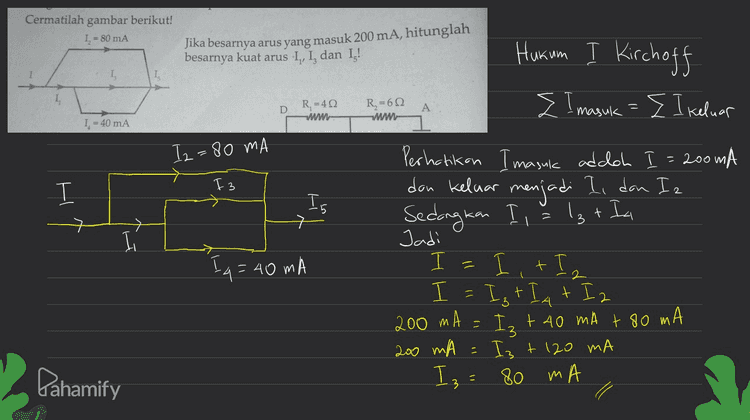 Cermatilah gambar berikut!
I₂ = 80 mA
I
I₃
I₅
I₁
I₄ = 40 mA
Jika besarnya arus yang masuk 200 mA, hitunglah
besarnya kuat arus I₁, I₃ dan I₅!
D R₁=4Ω R₂=6Ω A
I₂ = 80 mA
I
I₃
I₅
I₁
I₄ = 40 mA
Hukum I Kirchoff
Σ I masuk = Σ I keluar
Perhatikan I masuk adalah I = 200 mA
dan keluar menjadi I₁ dan I₂
Sedangkan I₁ = I₃ + I₄
Jadi
I = I₁ + I₂
I = I₃ + I₄ + I₂
200 mA = I₃ + 40 mA + 80 mA
200 mA = I₃ + 120 mA
I₃ = 80 mA
Pahamify